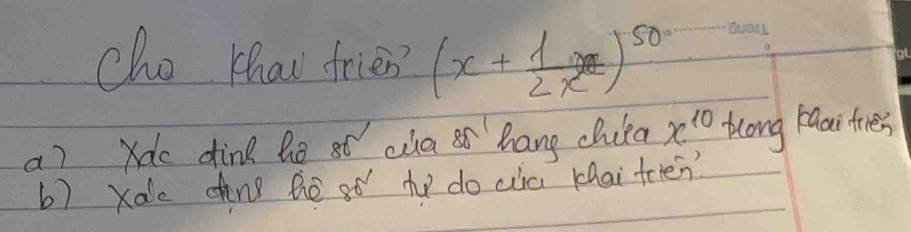 Cho khai triển (x + 1/2x)^50
a) Xác định hệ số của số hạng chứa x^10 trong khai triển
b) Xác định hệ số tự do của khai triển